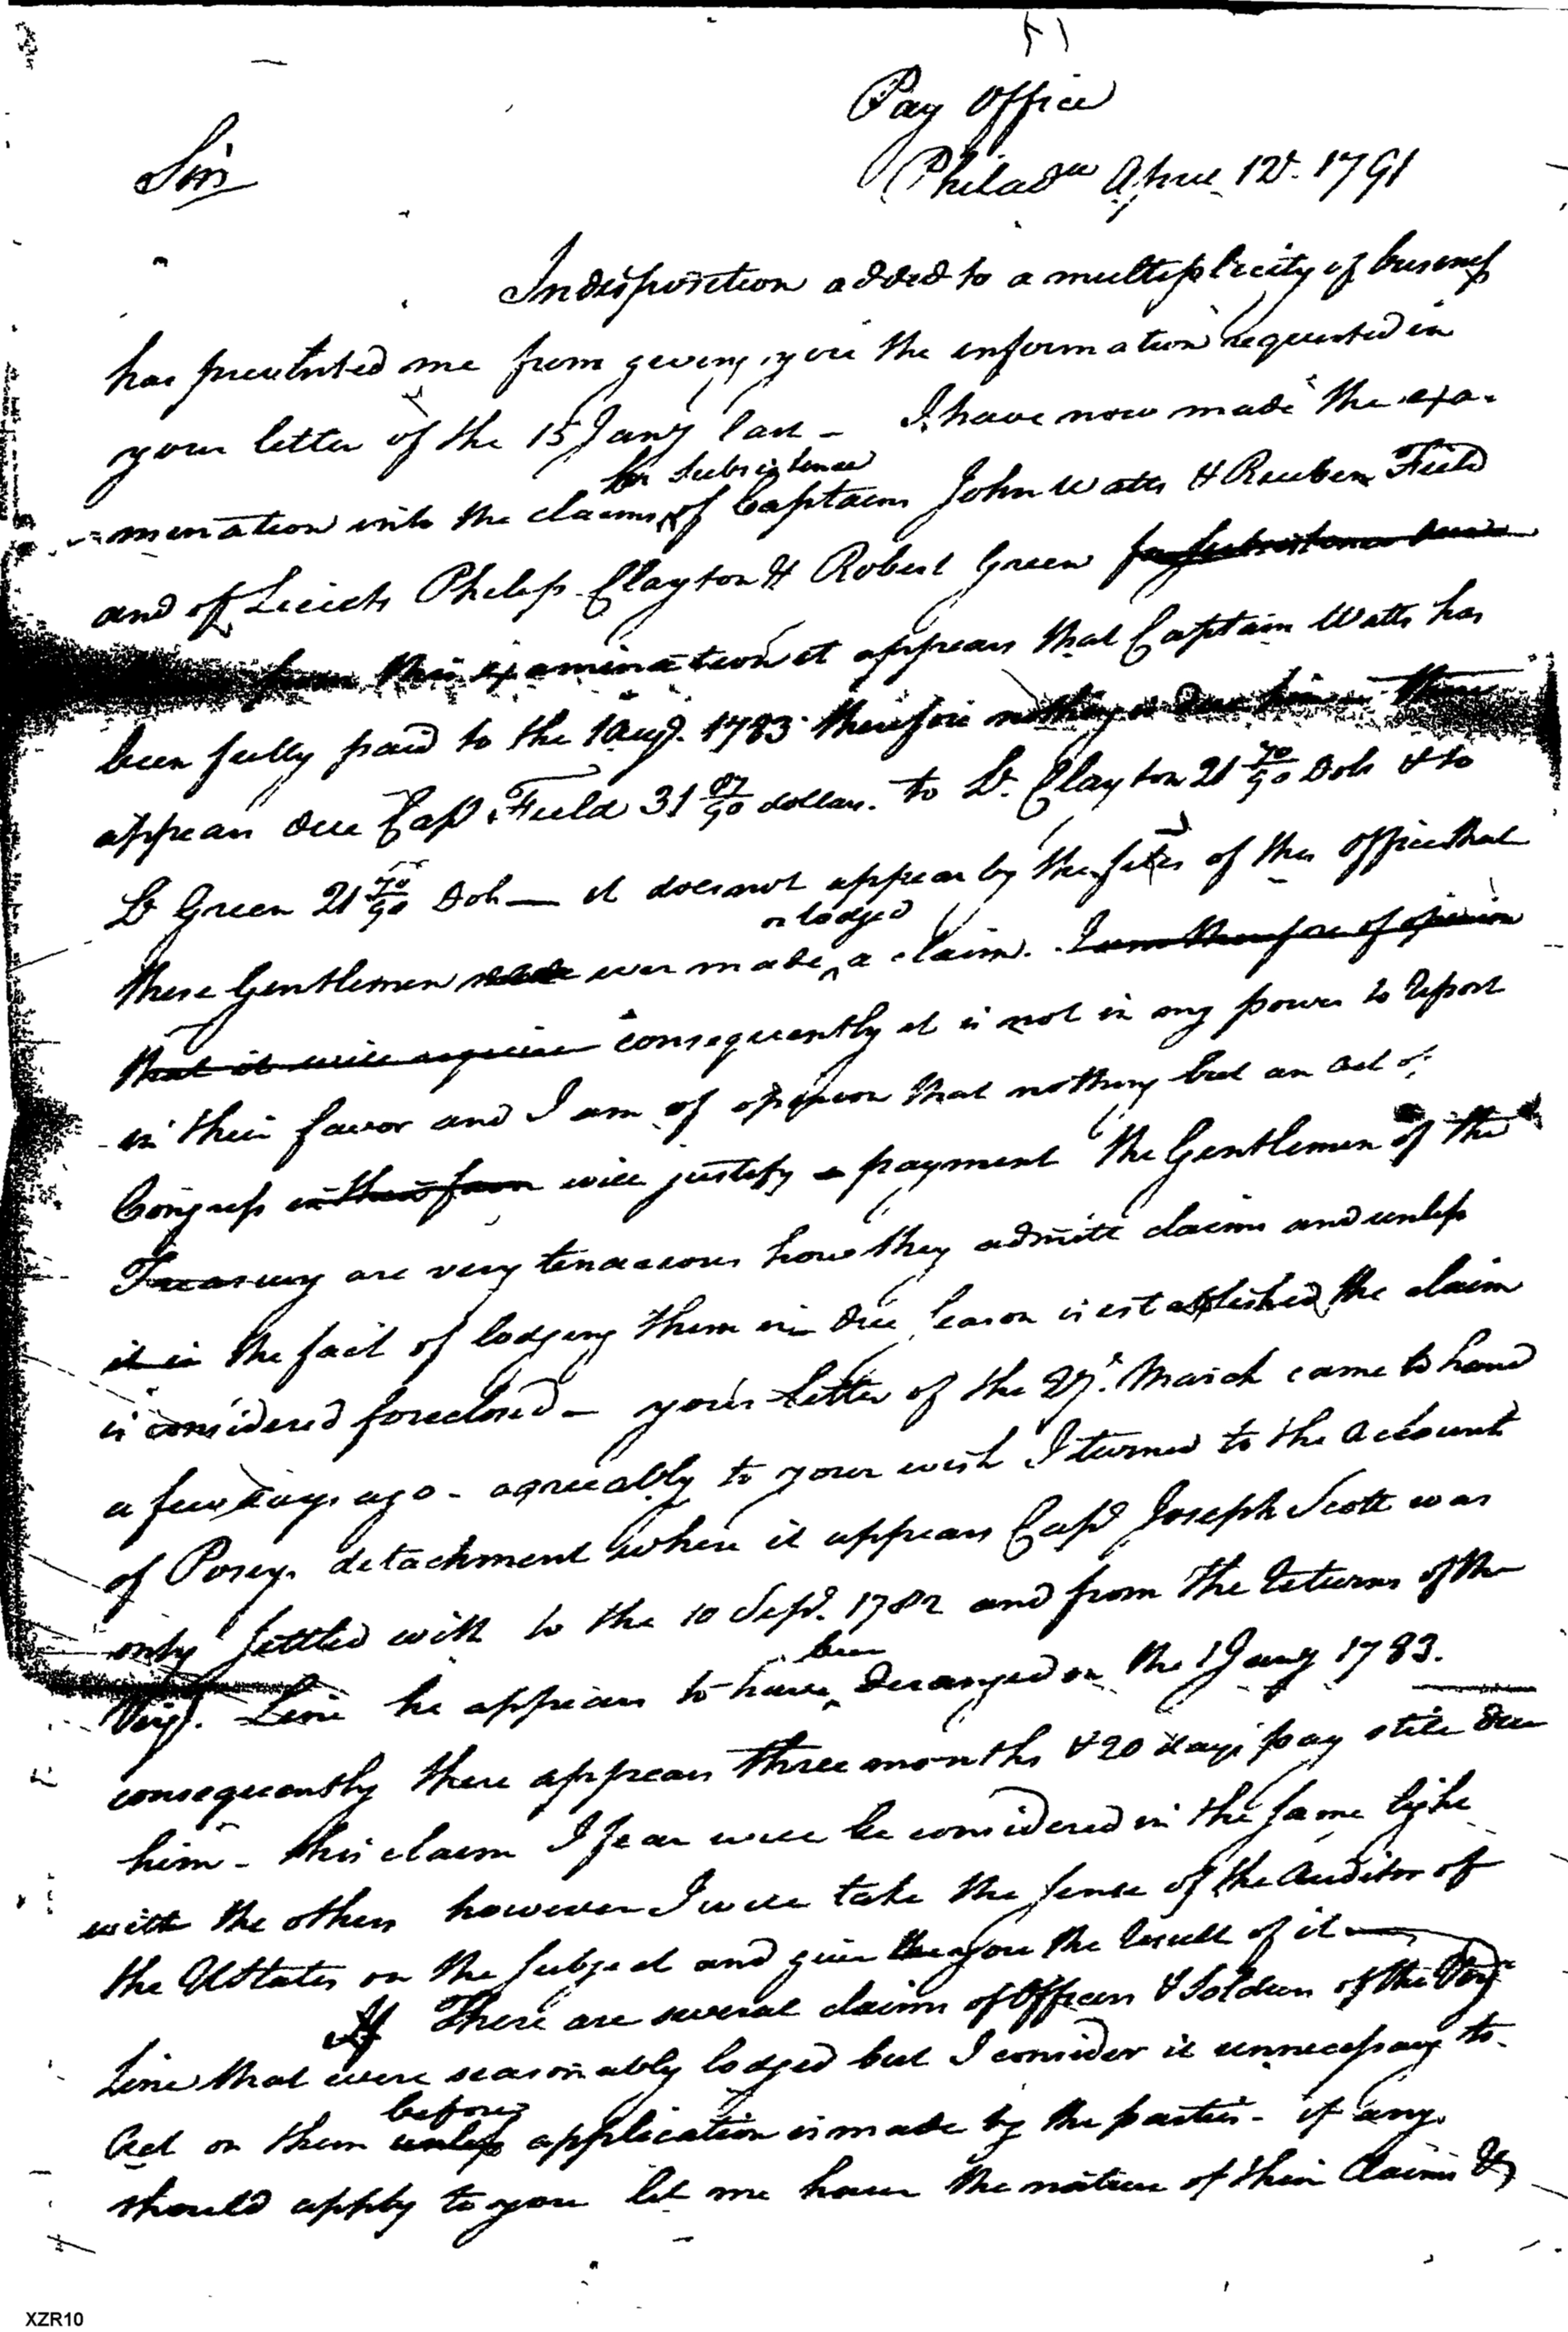 Pay Office
Philada April 12. 1791
Sir
Indisposition added to a multiplicity of business
has prevented me from giving you the information requested in
your letter of the 15 Jany last - I have now made the exa-
for subsistence
-mination into the claims of Captains John Watts & Reuben Field
and of Lieuts Philip Clayton & Robert Green for subsistence
from this examination it appears that Captain Watts has
been fully paid to the 1 Augt. 1783 therefore nothing is due him - there
appears due Capt Field 31 87/90 dollars. to Lt. Clayton 21 70/90 Dols & to
Lt Green 21 70/90 Dols — it does not appear by the files of this office that
or lodged
these Gentlemen ever made a claim. I am therefore of opinion
that it will require consequently it is not in my power to report
in their favor and I am of opinion that nothing but an act of
Congress in their favor will justify a payment The Gentlemen of the
Treasury are very tenacious how they admitt claims and unless
it is the fact of lodging them in due season is established the claim
is considered foreclosed - your letter of the 27. March came to hand
a few days ago - agreeably to your wish I turned to the account
of Poseys detachment where it appears Capt Joseph Scott was
only settled with to the 10 Sept. 1782 and from the returns of the
been
Virga. Line he appears to have deranged on the 1 Jany 1783.
consequently there appears three months & 20 days pay still due
him - this claim I fear will be considered in the same light
with the others however I will take the sense of the Auditor of
the UStates on the subject and give the you the result of it —
If There are several claims of Officers & Soldiers of the Virga
Line that were seasonably lodged but I consider it unnecessary to
before
act on them unless application is made by the parties - if any
should apply to you let me have the nature of their claims &
XZR10